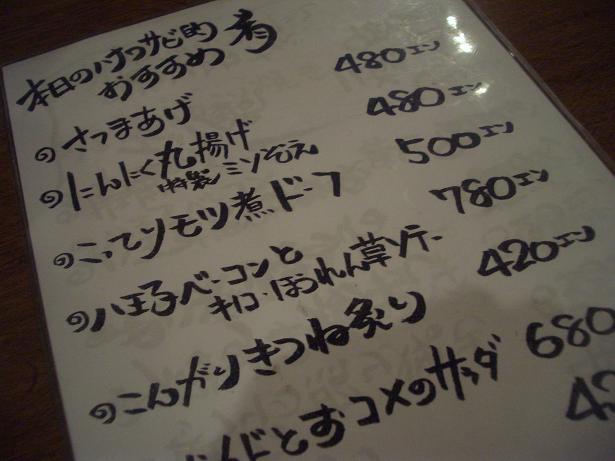 本日のハナワサビ的
おすすめ 肴
のさつまあげ 480エン
のにんにく丸揚げ 480エン
特製ミソぞえ
のこってリモツ煮ドーフ 500エン
の八王子ベーコンと 780エン
キノコ・ほうれん草ソテー
のこんがりきつね炙り 420エン
ドとおコメのサラダ 680